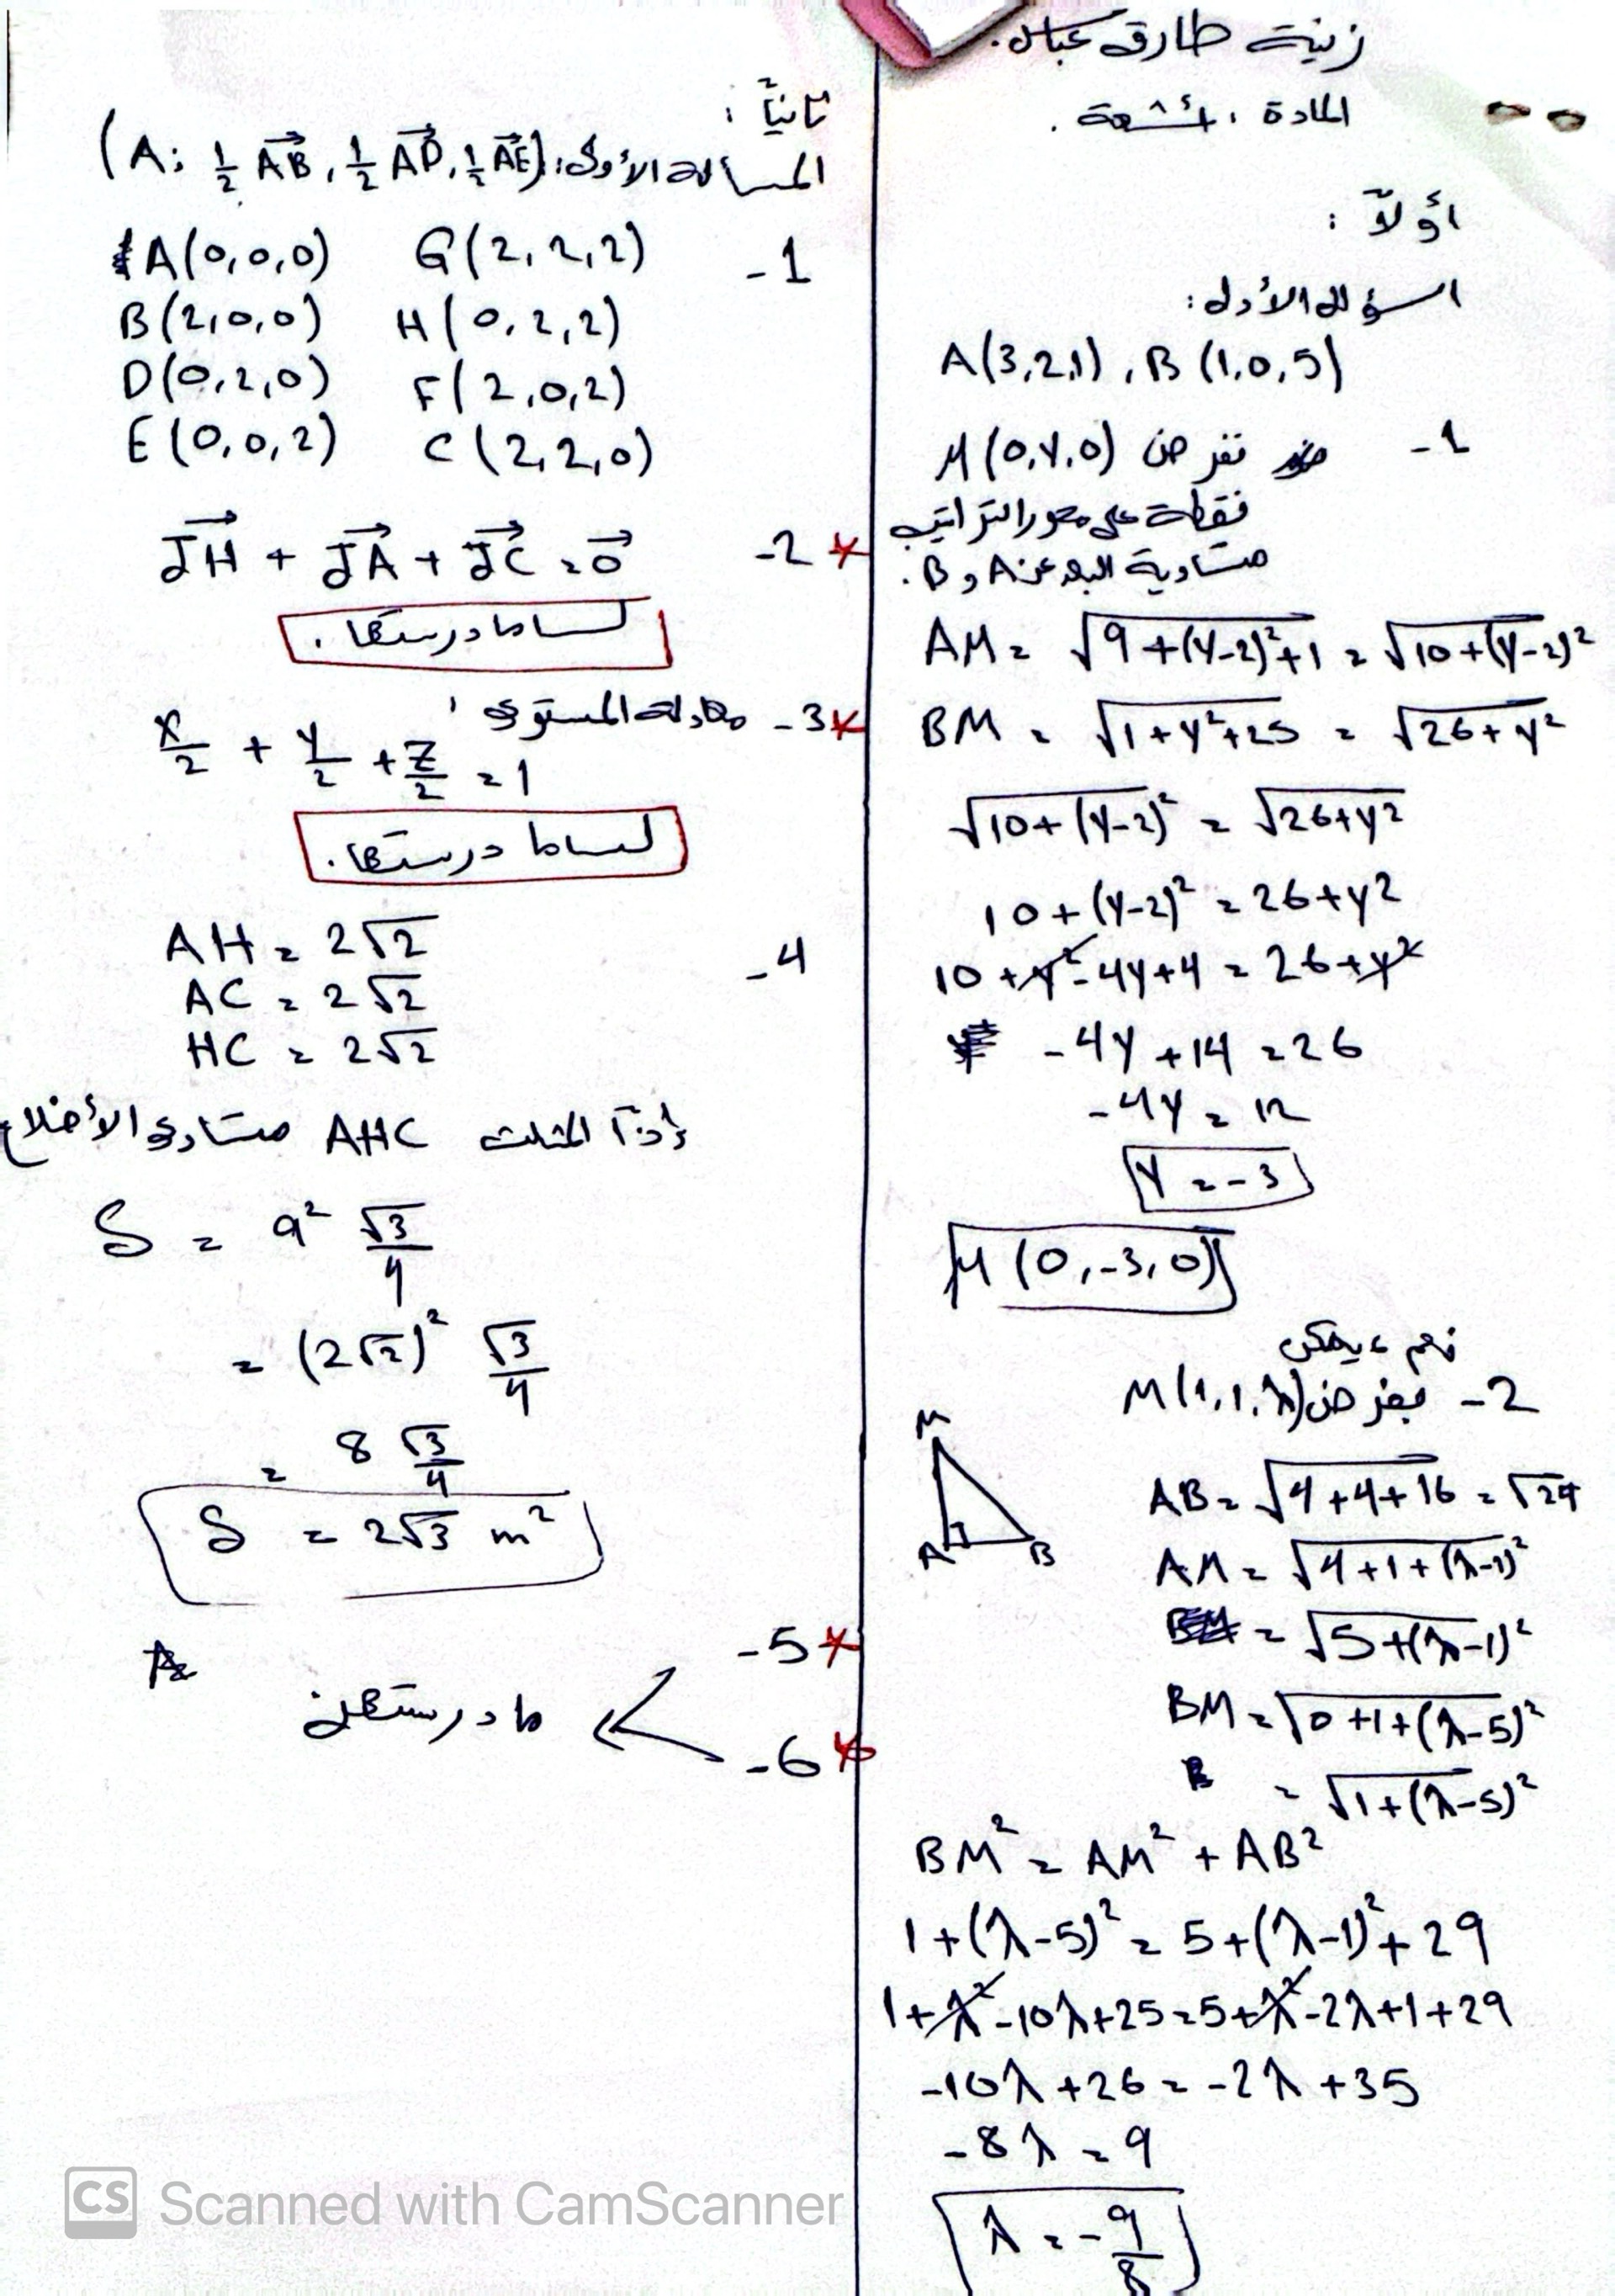 زينة طارق عباس.
المادة: أشعة.
أولاً:
السؤال الأول:
A(3,2,1), B(1,0,5)
1- نفرض M(0,y,0)
نقطة على محور التراتيب
متساوية البعد عن A و B.
AM = √9+(y-2)²+1 = √10+(y-2)²
BM = √1+y²+25 = √26+y²
√10+(y-2)² = √26+y²
10+(y-2)² = 26+y²
10+y²-4y+4 = 26+y²
-4y+14 = 26
-4y = 12
y = -3
M(0,-3,0)
نعم، يمكن
2- بفرض M(1,1,λ)
M
A
B
AB = √4+4+16 = √24
AM = √4+1+(λ-1)²
= √5+(λ-1)²
BM = √0+1+(λ-5)²
= √1+(λ-5)²
BM² = AM² + AB²
1+(λ-5)² = 5+(λ-1)²+29
1+λ²-10λ+25=5+λ²-2λ+1+29
-10λ+26 = -2λ+35
-8λ = 9
λ = -9/8
ثانياً:
المسألة الأولى: (A; ½ AB, ½ AD, ½ AE)
1- A(0,0,0) G(2,2,2)
B(2,0,0) H(0,2,2)
D(0,2,0) F(2,0,2)
E(0,0,2) C(2,2,0)
2- JH + JA + JC = 0
لسا ما درستها.
3- معادلة المستوي:
x/2 + y/2 + z/2 = 1
لسا ما درستها.
4- AH = 2√2
AC = 2√2
HC = 2√2
إذاً المثلث AHC متساوي الأضلاع
S = a² √3/4
= (2√2)² √3/4
= 8 √3/4
S = 2√3 m²
5-
ما درستهن
6-
CS Scanned with CamScanner